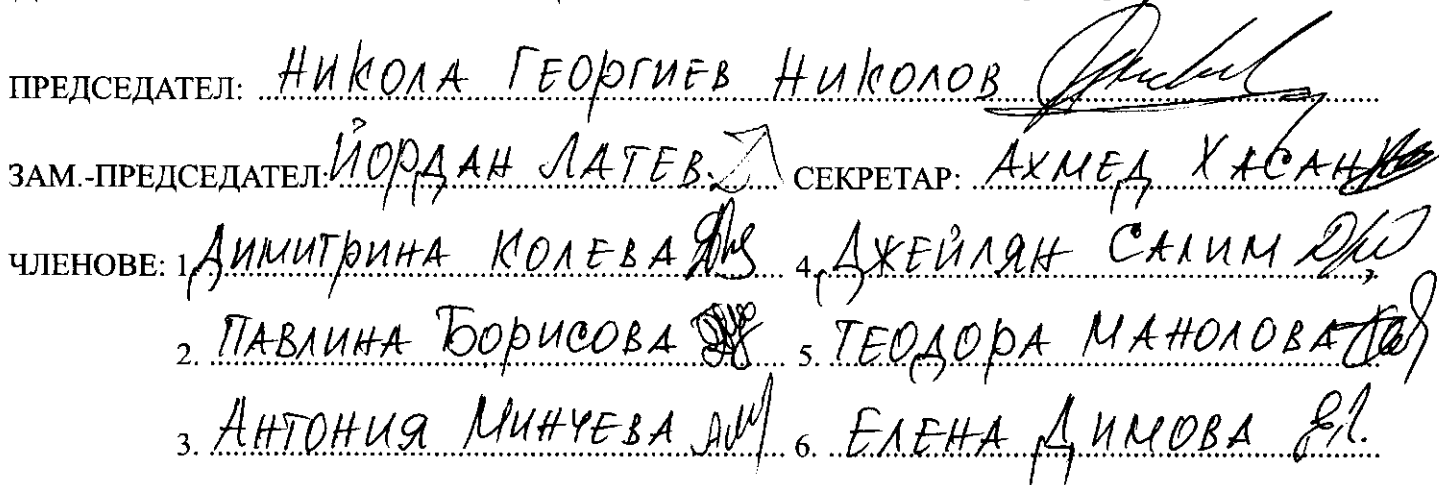 ПРЕДСЕДАТЕЛ: НИКОЛА ГЕОРГИЕВ НИКОЛОВ
ЗАМ.-ПРЕДСЕДАТЕЛ: ЙОРДАН ЛАТЕВ СЕКРЕТАР: АХМЕД ХАСАН
ЧЛЕНОВЕ: 1. ДИМИТРИНА КОЛЕВА 4. ДЖЕЙЛЯН САЛИМ
2. ПАВЛИНА БОРИСОВА 5. ТЕОДОРА МАНОЛОВА
3. АНТОНИЯ МИНЧЕВА 6. ЕЛЕНА ДИМОВА